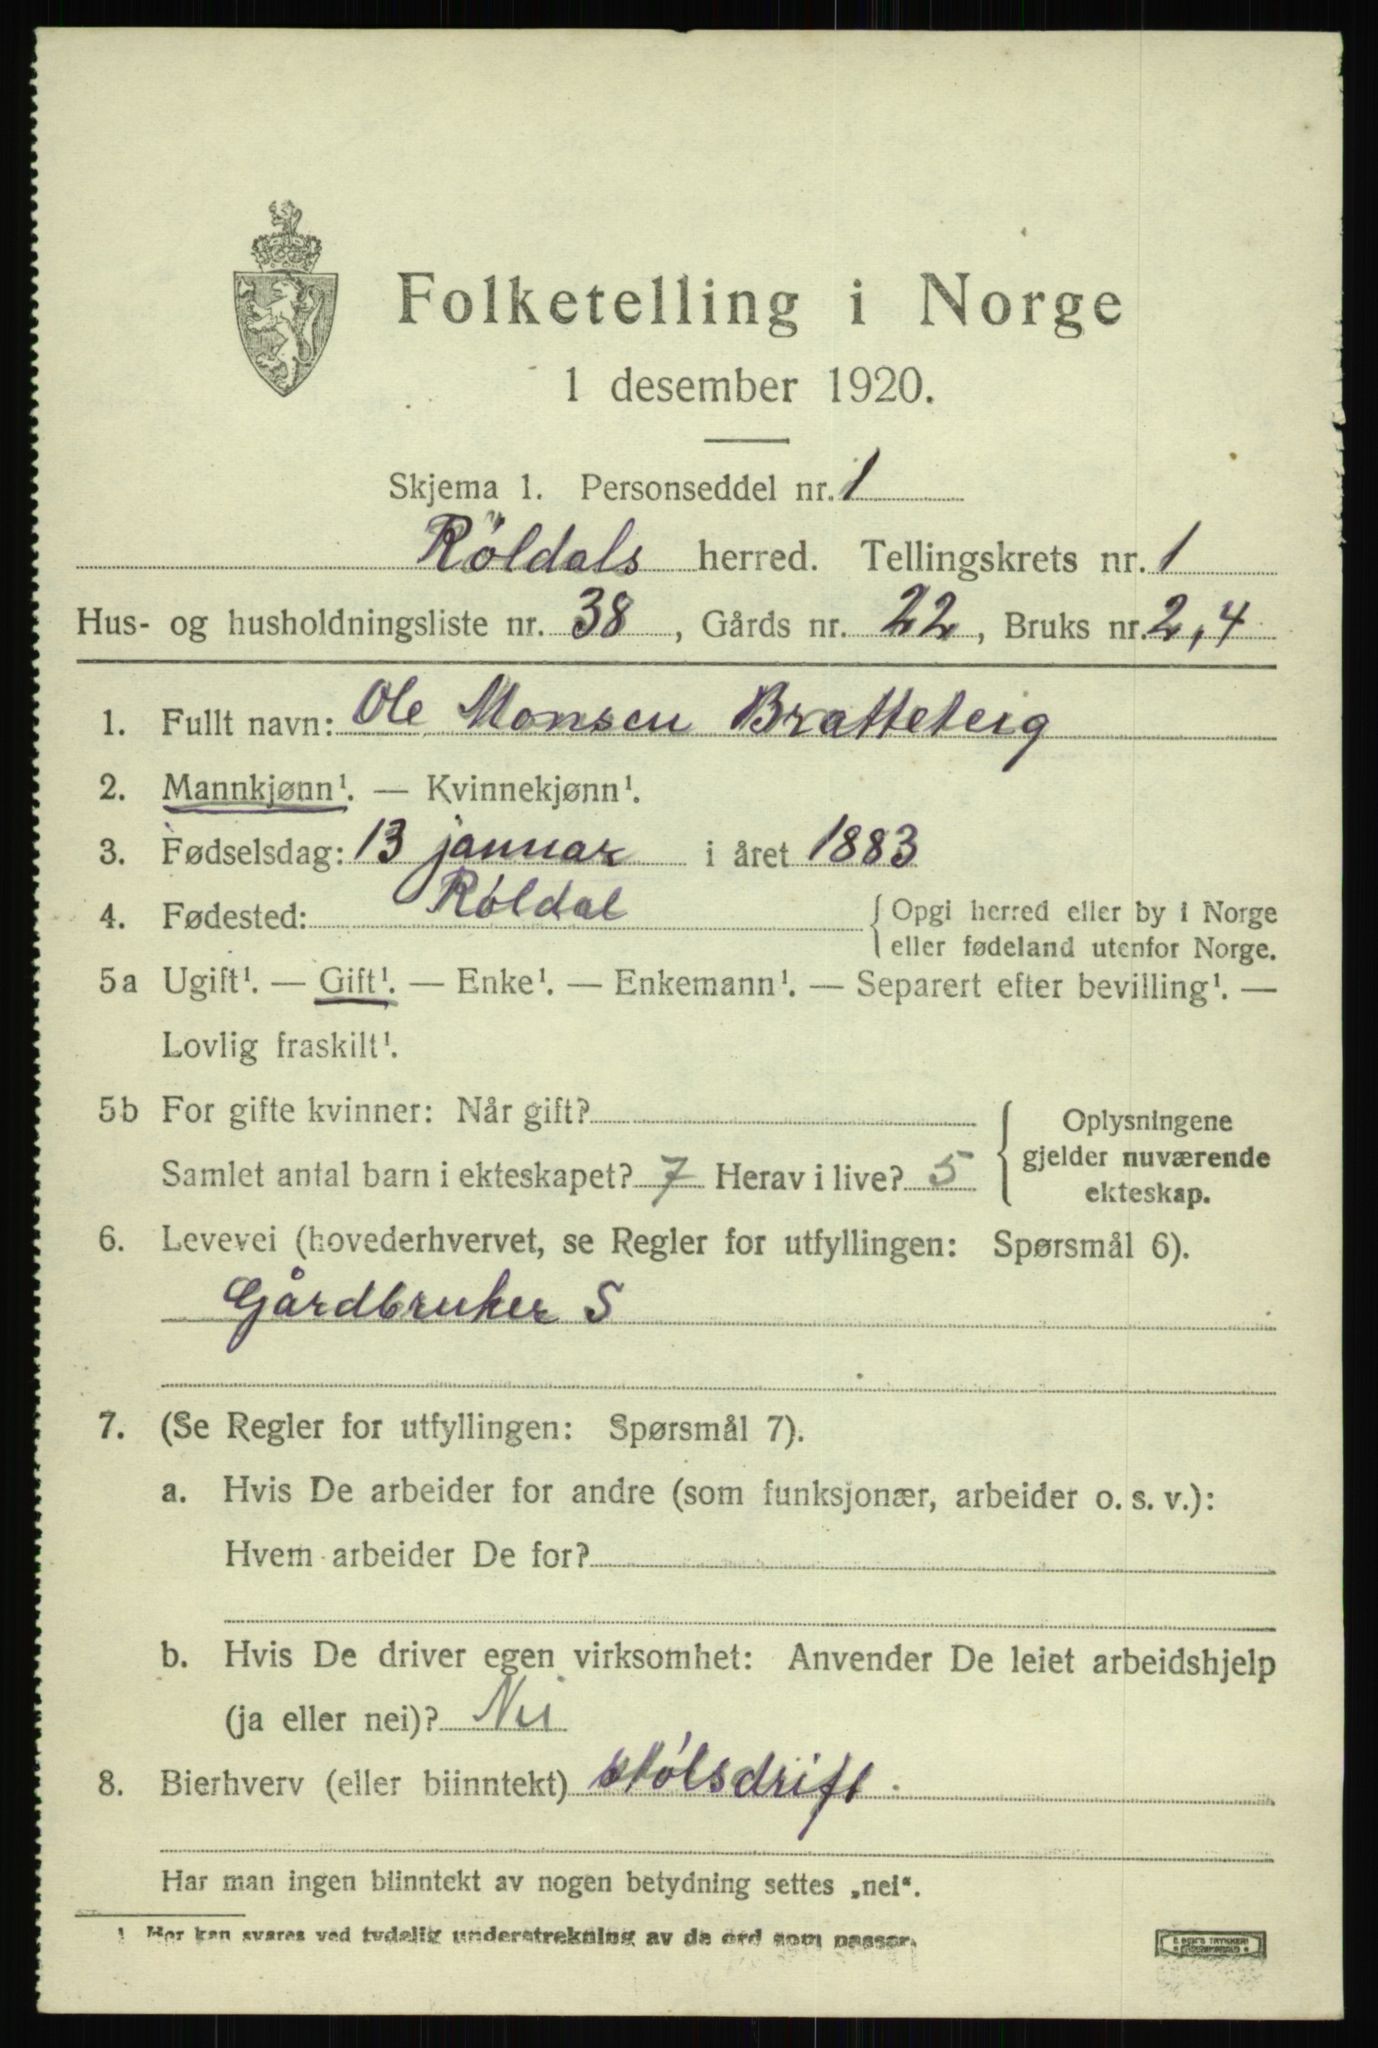 Folketelling i Norge
1 desember 1920.
Skjema 1. Personseddel nr. 1
Röldals herred. Tellingskrets nr. 1
Hus- og husholdningsliste nr. 38, Gårds nr. 22, Bruks nr. 2,4
1. Fullt navn: Ole Monsen Bratteteig
2. Mannkjønn¹. — Kvinnekjønn¹.
3. Fødselsdag: 13 januar i året 1883
4. Fødested: Róldal { Opgi herred eller by i Norge
eller fødeland utenfor Norge.
5a Ugift¹. — Gift¹. — Enke¹. — Enkemann¹. — Separert efter bevilling¹. —
Lovlig fraskilt¹.
5b For gifte kvinner: Når gift?
Samlet antal barn i ekteskapet? 7 Herav i live? 5
{ Oplysningene
gjelder nuværende
ekteskap.
6. Levevei (hovederhvervet, se Regler for utfyllingen: Spørsmål 6).
Gårdbruker S
7. (Se Regler for utfyllingen: Spørsmål 7).
a. Hvis De arbeider for andre (som funksjonær, arbeider o. s. v.):
Hvem arbeider De for?
b. Hvis De driver egen virksomhet: Anvender De leiet arbeidshjelp
(ja eller nei)? Nei
8. Bierhverv (eller biinntekt) stólsdrift.
Har man ingen biinntekt av nogen betydning settes „nei“.
1 Her kan svares ved tydelig understrekning av de ord som passer.